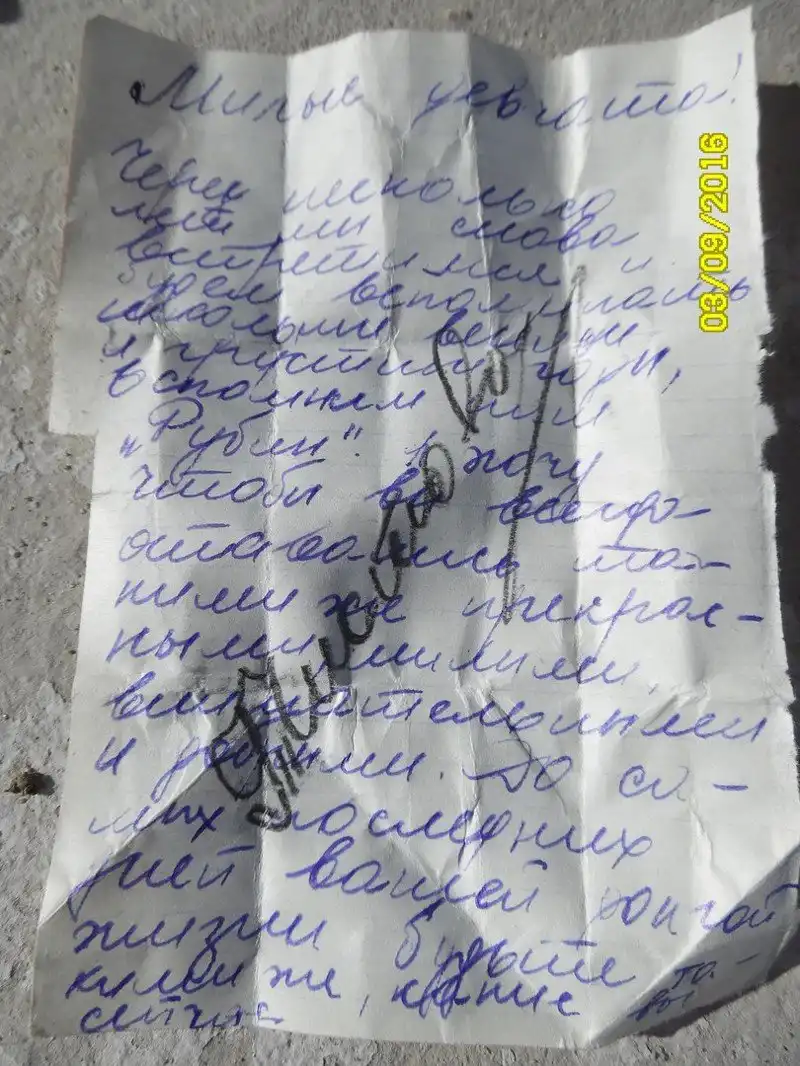 Милые девчата!
Через несколько
лет мы снова
встретимся и
будем вспоминать
школьные весёлые
и грустные годы,
вспомним наш
„Рубин". Я хочу
чтобы вы всегда
оставались та-
кими же прекрас-
ными, милыми,
внимательными
и добрыми. До са-
мых последних
дней вашей долгой
жизни будьте та-
кими же, какие вы
сейчас
Письмо
03/09/2016